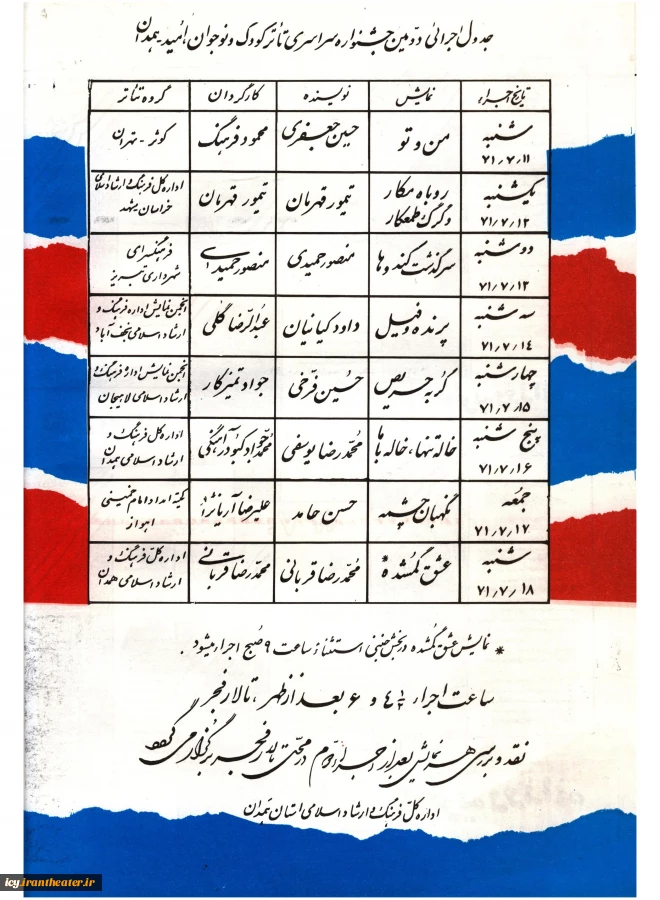 جدول اجرائی دومین جشنواره سراسری تأتر کودک و نوجوان، امید، همدان
تاریخ اجراء نمایش نویسنده کارگردان گروه تئاتر
شنبه ۷۱٫۷٫۱۱ من و تو حسین جعفری محمود فرهنگ کوثر - تهران
یکشنبه ۷۱٫۷٫۱۲ روباه مکار و گرگ طمعکار تیمور قهرمان تیمور قهرمان اداره کل فرهنگ و ارشاد اسلامی خراسان مشهد
دوشنبه ۷۱٫۷٫۱۳ سرگذشت کندوها منصور حمیدی منصور حمیدی فرهنگسرای شهرداری تبریز
سه شنبه ۷۱٫۷٫۱۴ پرنده و فیل داود کیانیان عبدالرضا گلی انجمن نمایش اداره فرهنگ و ارشاد اسلامی نجف آباد
چهارشنبه ۷۱٫۷٫۱۵ گربه حریص حسین فرخی جواد تمیزکار انجمن نمایش اداره فرهنگ و ارشاد اسلامی لاهیجان
پنج شنبه ۷۱٫۷٫۱۶ خاله تنها، خاله باما محمدرضا یوسفی محمدجواد کبودرآهنگی اداره کل فرهنگ و ارشاد اسلامی همدان
جمعه ۷۱٫۷٫۱۷ نگهبان چشمه حسن حامد علیرضا آریانژاد کمیته امداد امام خمینی اهواز
شنبه ۷۱٫۷٫۱۸ عشق گمشده * محمدرضا قربانی محمدرضا قربانی اداره کل فرهنگ و ارشاد اسلامی همدان
* نمایش عشق گمشده در بخش جنبی استثنأ از ساعت ۹ صبح اجرا میشود.
ساعت اجرا، ۴½ و ۶ بعد از ظهر، تالار فجر
نقد و بررسی همه نمایش بعد از اجرا دوم در محل تالار فجر برگزار می گردد
اداره کل فرهنگ و ارشاد اسلامی استان همدان
icy.irantheater.ir